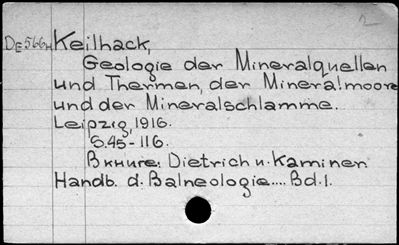 2
DE566н Keilhack,
Geologie der Mineralquellen
und Thermen, der Mineralmoore
und der Mineralschlamme.
Leipzig, 1916.
S.45-116.
В книге: Dietrich u. Kaminer
Handb. d. Balneologie.... Bd.1.